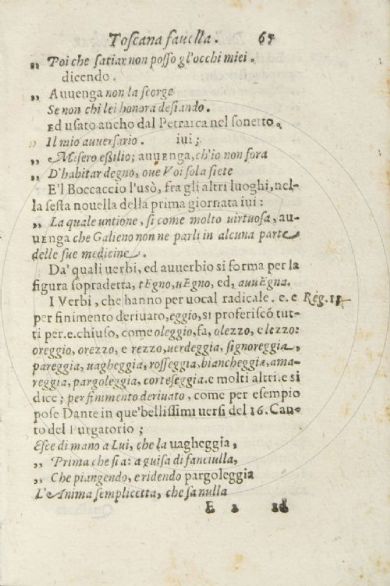 Toscana fauella. 67
„ Poi che satiar non posso gl'occhi miei.
dicendo.
„ Auuenga non la scorge
Se non chi lei honora desiando.
Ed usato ancho dal Petrarca nel sonetto.
„ Il mio auuersario. iui;
„ Misero essilio; auuenga, ch'io non fora
„ D'habitar degno, oue Voi sola siete
E'l Boccaccio l'usò, fra gli altri luoghi, nel-
la sesta nouella della prima giornata iui:
„ La quale untione, si come molto uirtuosa, au-
uenga che Galieno non ne parli in alcuna parte
delle sue medicine.
Da' quali uerbi, ed auuerbio si forma per la
figura sopradetta, tEgno, uEgno, ed, auuEgna.
I Verbi, che hanno per uocal radicale. e. e Reg. 13
per finimento deriuato, eggio, si proferiscõ tut-
ti per. e. chiuso, come oleggio, fa, olezzo, e lezzo:
oreggio, orezzo, e rezzo, uerdeggia, signoreggia,
pareggia, uagheggia, rosseggia, biancheggia, ama-
reggia, pargoleggia, corteseggia. e molti altri. e si
dice; per finimento deriuato, come per esempio
pose Dante in que' bellissimi uersi del 16. Can-
to del Purgatorio;
Esce di mano a Lui, che la uagheggia,
„ Prima che sia: a guisa di fanciulla,
„ Che piangendo, e ridendo pargoleggia
L'Anima semplicetta, che sa nulla
E 2 id